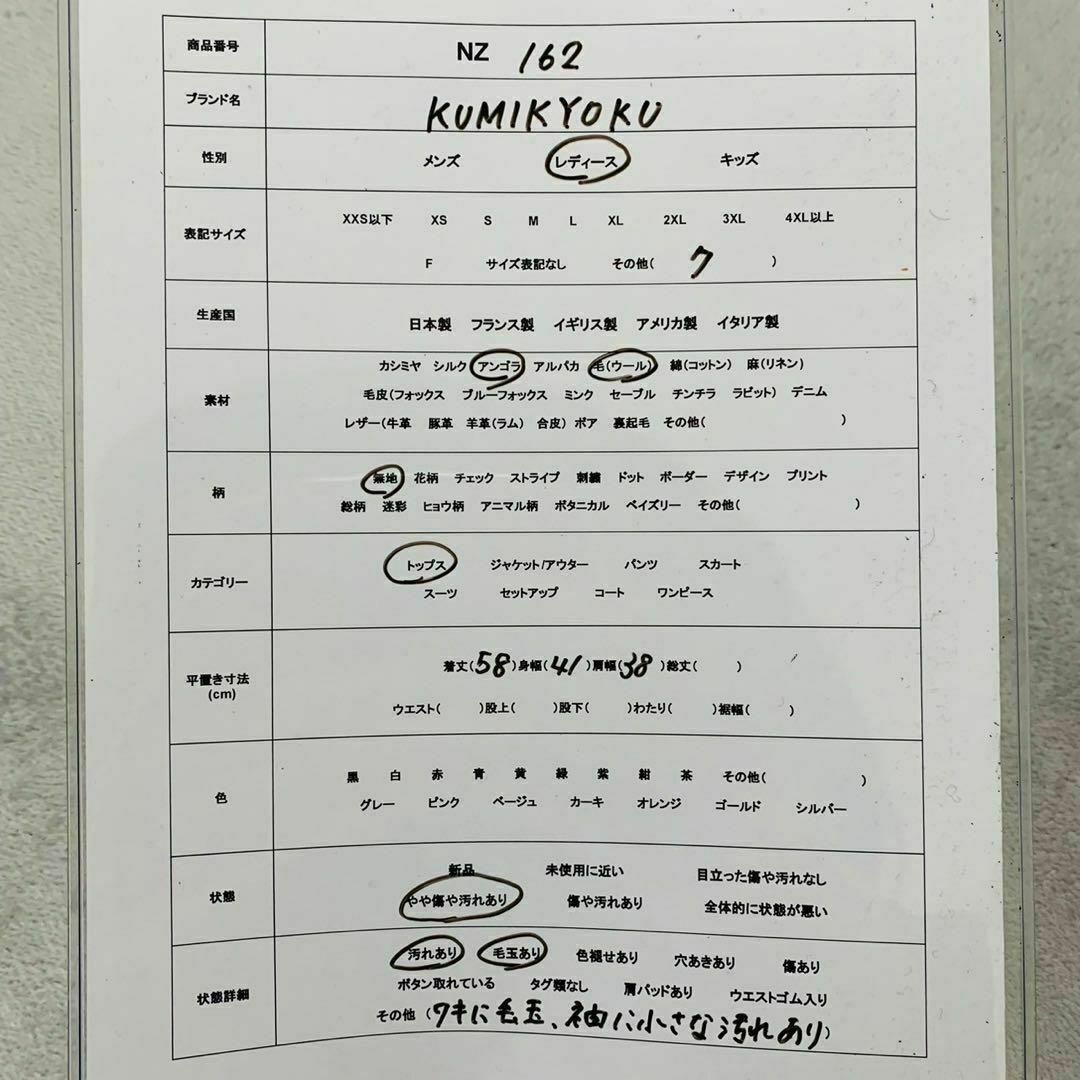 商品番号 NZ 162
ブランド名 KUMIKYOKU
性別 メンズ レディース キッズ
表記サイズ
XXS以下 XS S M L XL 2XL 3XL 4XL以上
F サイズ表記なし その他( 7 )
生産国 日本製 フランス製 イギリス製 アメリカ製 イタリア製
素材
カシミヤ シルク アンゴラ アルパカ 毛(ウール) 綿(コットン) 麻(リネン)
毛皮(フォックス ブルーフォックス ミンク セーブル チンチラ ラビット) デニム
レザー(牛革 豚革 羊革(ラム) 合皮) ボア 裏起毛 その他( )
柄
無地 花柄 チェック ストライプ 刺繍 ドット ボーダー デザイン プリント
総柄 迷彩 ヒョウ柄 アニマル柄 ボタニカル ペイズリー その他( )
カテゴリー
トップス ジャケット/アウター パンツ スカート
スーツ セットアップ コート ワンピース
平置き寸法
(cm)
着丈(58)身幅(41)肩幅(38)総丈( )
ウエスト( )股上( )股下( )わたり( )裾幅( )
色
黒 白 赤 青 黄 緑 紫 紺 茶 その他( )
グレー ピンク ベージュ カーキ オレンジ ゴールド シルバー
状態
新品 未使用に近い 目立った傷や汚れなし
やや傷や汚れあり 傷や汚れあり 全体的に状態が悪い
状態詳細
汚れあり 毛玉あり 色褪せあり 穴あきあり 傷あり
ボタン取れている タグ類なし 肩パッドあり ウエストゴム入り
その他 (ワキに毛玉、袖に小さな汚れあり)